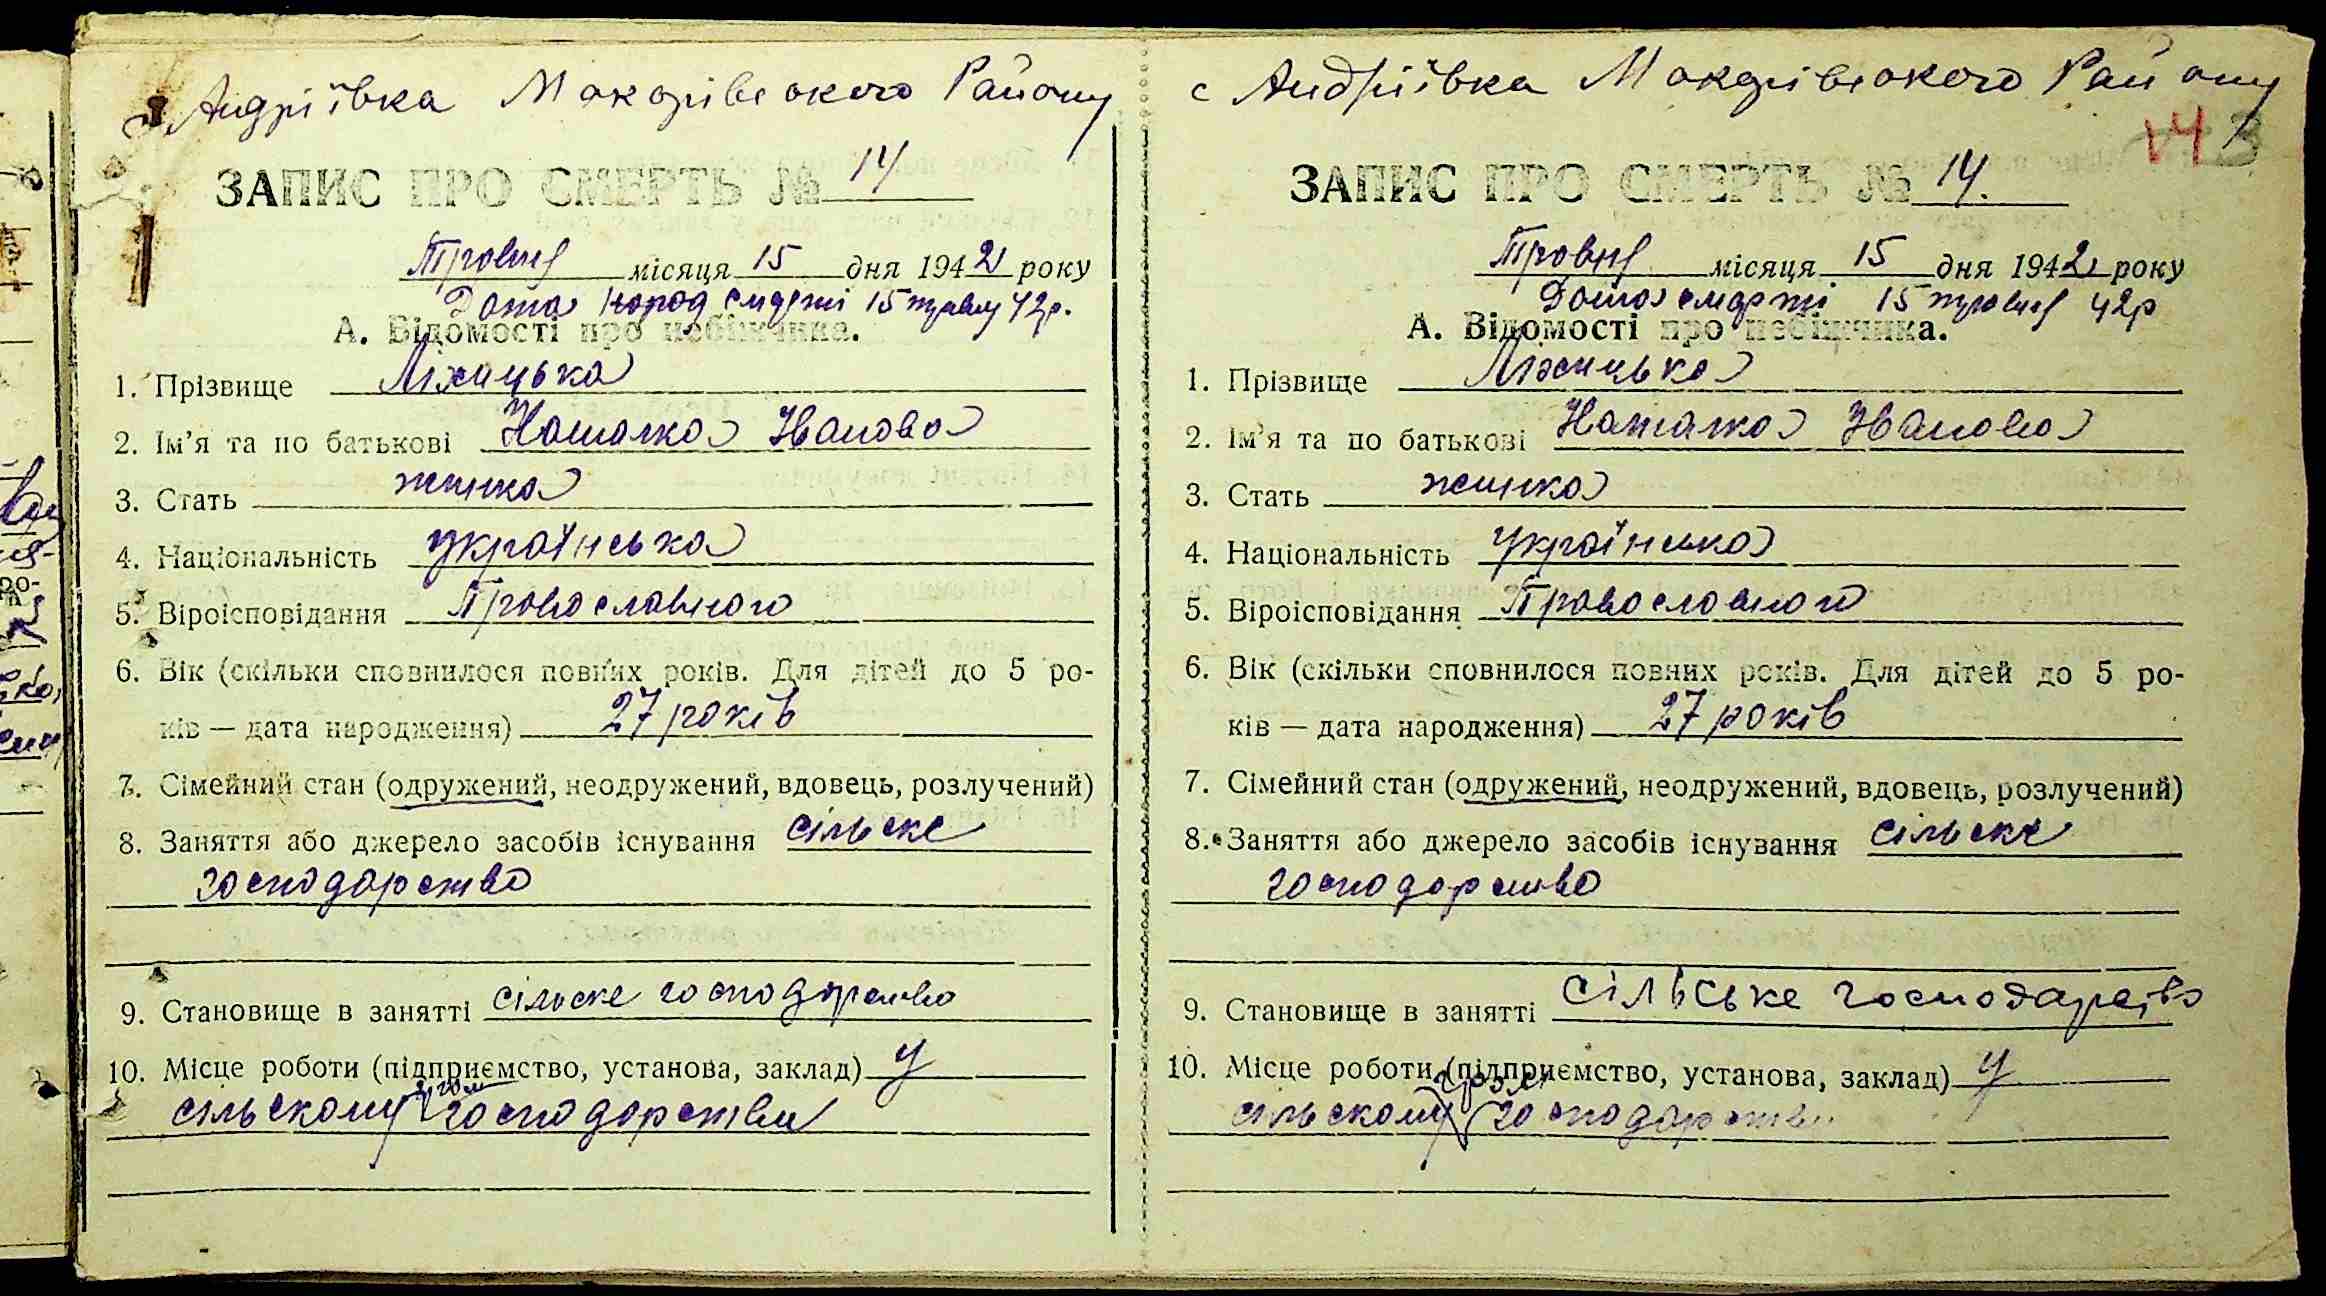 с Андріївка Макарівського Району
ЗАПИС ПРО СМЕРТЬ № 14
Травня місяця 15 дня 1942 року
Дата смерті 15 травня 42р.
А. Відомості про небіжчика.
1. Прізвище Ліхицька
2. Ім'я та по батькові Наталка Іванова
3. Стать жінка
4. Національність українська
5. Віроісповідання Православного
6. Вік (скільки сповнилося повних років. Для дітей до 5 ро-
ків — дата народження) 27 років
7. Сімейний стан (одружений, неодружений, вдовець, розлучений)
8. Заняття або джерело засобів існування сільске
господарство
9. Становище в занятті сільске господарство
10. Місце роботи (підприємство, установа, заклад) у
гром
сільскому господарстви
с Андріївка Макарівського Району
14 3
ЗАПИС ПРО СМЕРТЬ № 14.
Травня місяця 15 дня 1942 року
Дата смерти 15 травня 42р
А. Відомості про небіжчика.
1. Прізвище Ліхицька
2. Ім'я та по батькові Наталка Іванова
3. Стать жинка
4. Національність українська
5. Віроісповідання Православного
6. Вік (скільки сповнилося повних років. Для дітей до 5 ро-
ків — дата народження) 27 років
7. Сімейний стан (одружений, неодружений, вдовець, розлучений)
8. Заняття або джерело засобів існування сільске
господарство
9. Становище в занятті сільське господарство
10. Місце роботи (підприємство, установа, заклад) у
гром
сільскому господарстви